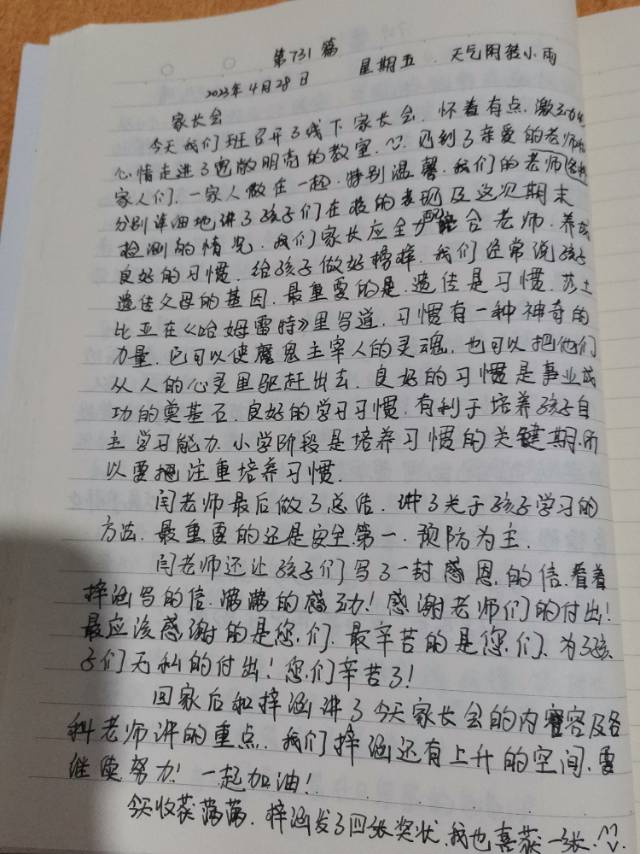 第731篇
2023年4月28日 星期五 天气阴转小雨
家长会
今天我们班召开了线下家长会,怀着有点激动的
心情走进了宽敞明亮的教室,见到了亲爱的老师和
家人们,一家人做在一起,特别温馨,我们的老师
分别详细地讲了孩子们在校的表现及这次期末
检测的情况,我们家长应全力配合老师,养成
良好的习惯,给孩子做好榜样,我们经常说孩子
遗传父母的基因,最重要的是,遗传是习惯,莎士
比亚在《哈姆雷特》里写道,习惯有一种神奇的
力量,它可以使魔鬼主宰人的灵魂,也可以把他们
从人的心灵里驱赶出去,良好的习惯是事业成
功的奠基石,良好的学习习惯,有利于培养孩子自
主学习能力,小学阶段是培养习惯的关键期,所
以要把注重培养习惯.
闫老师最后做了总结,讲了关于孩子学习的
方法,最重要的还是安全第一,预防为主.
闫老师还让孩子们写了一封感恩的信,看着
梓涵写的信,满满的感动!感谢老师们的付出!
最应该感谢的是您们,最辛苦的是您们,为了孩
子们无私的付出!您们辛苦了!
回家后和梓涵讲了今天家长会的内容及各
科老师讲的重点,我们梓涵还有上升的空间,要
继续努力!一起加油!
今天收获满满,梓涵发了四张奖状,我也喜获一张.